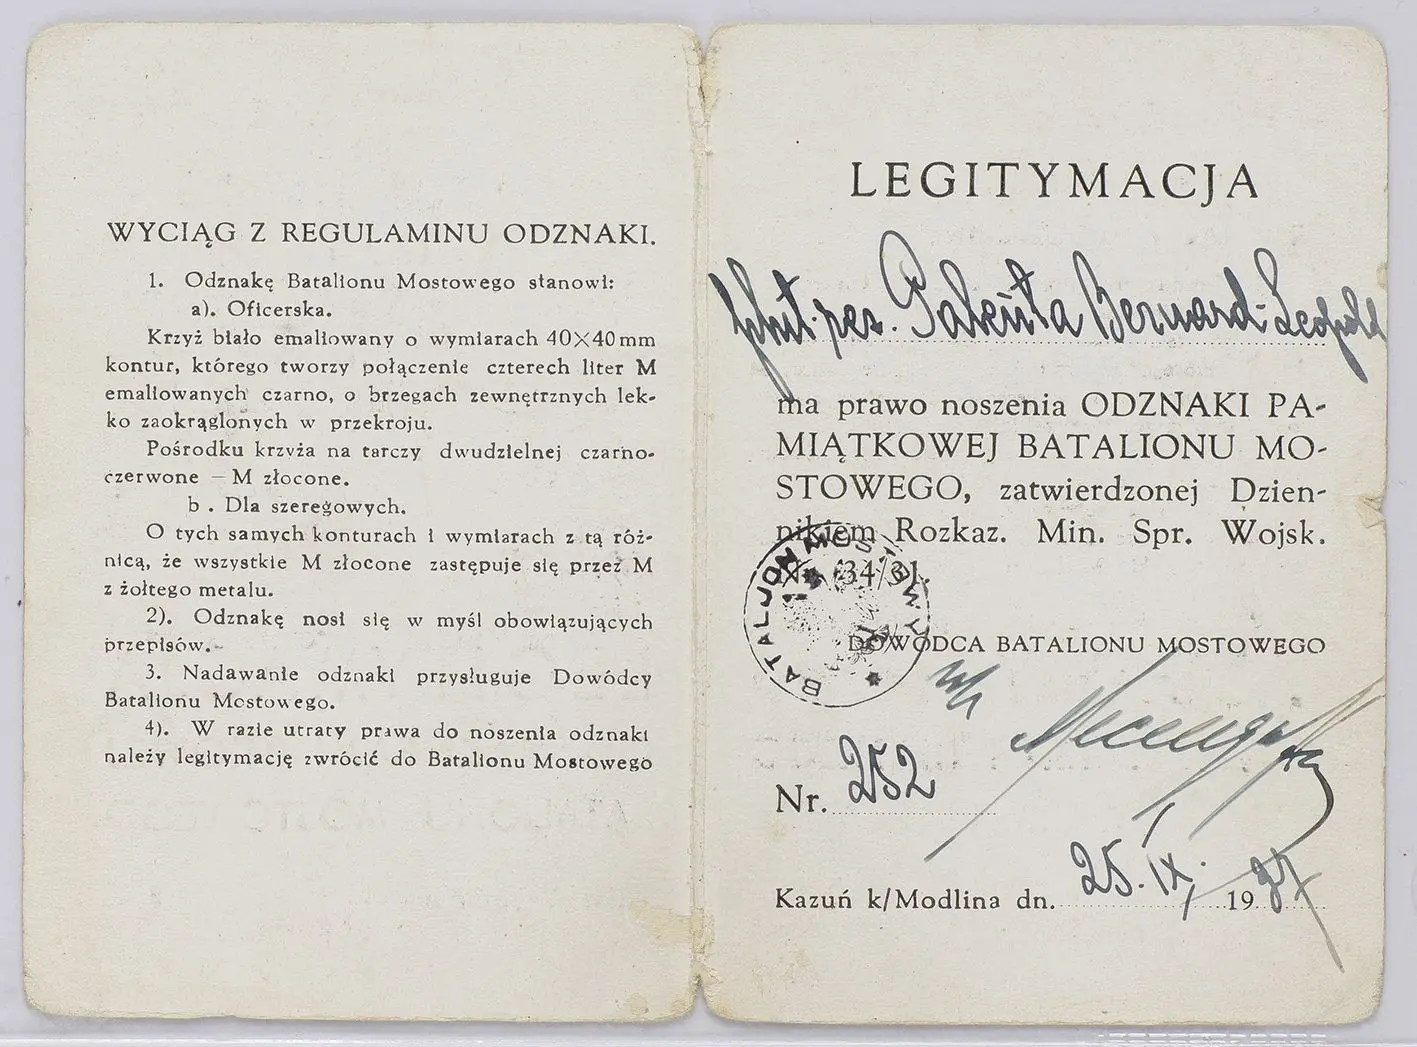 WYCIĄG Z REGULAMINU ODZNAKI.
1. Odznakę Batalionu Mostowego stanowi:
a). Oficerska.
Krzyż biało emaliowany o wymiarach 40×40mm
kontur, którego tworzy połączenie czterech liter M
emaliowanych czarno, o brzegach zewnętrznych lek-
ko zaokrąglonych w przekroju.
Pośrodku krzyża na tarczy dwudzielnej czarno-
czerwone — M złocone.
b . Dla szeregowych.
O tych samych konturach i wymiarach z tą róż-
nicą, że wszystkie M złocone zastępuje się przez M
z żołtego metalu.
2). Odznakę nosi się w myśl obowiązujących
przepisów.-
3. Nadawanie odznaki przysługuje Dowódcy
Batalionu Mostowego.
4). W razie utraty prawa do noszenia odznaki
należy legitymację zwrócić do Batalionu Mostowego
LEGITYMACJA
rez. Bernard-Leopold
ma prawo noszenia ODZNAKI PA-
MIĄTKOWEJ BATALIONU MO-
STOWEGO, zatwierdzonej Dzien-
nikiem Rozkaz. Min. Spr. Wojsk.
Nr. 34/31.
BATALJON MOSTOWY
DOWÓDCA BATALIONU MOSTOWEGO
Nr. 252
Kazuń k/Modlina dn. 25. IX. 1937